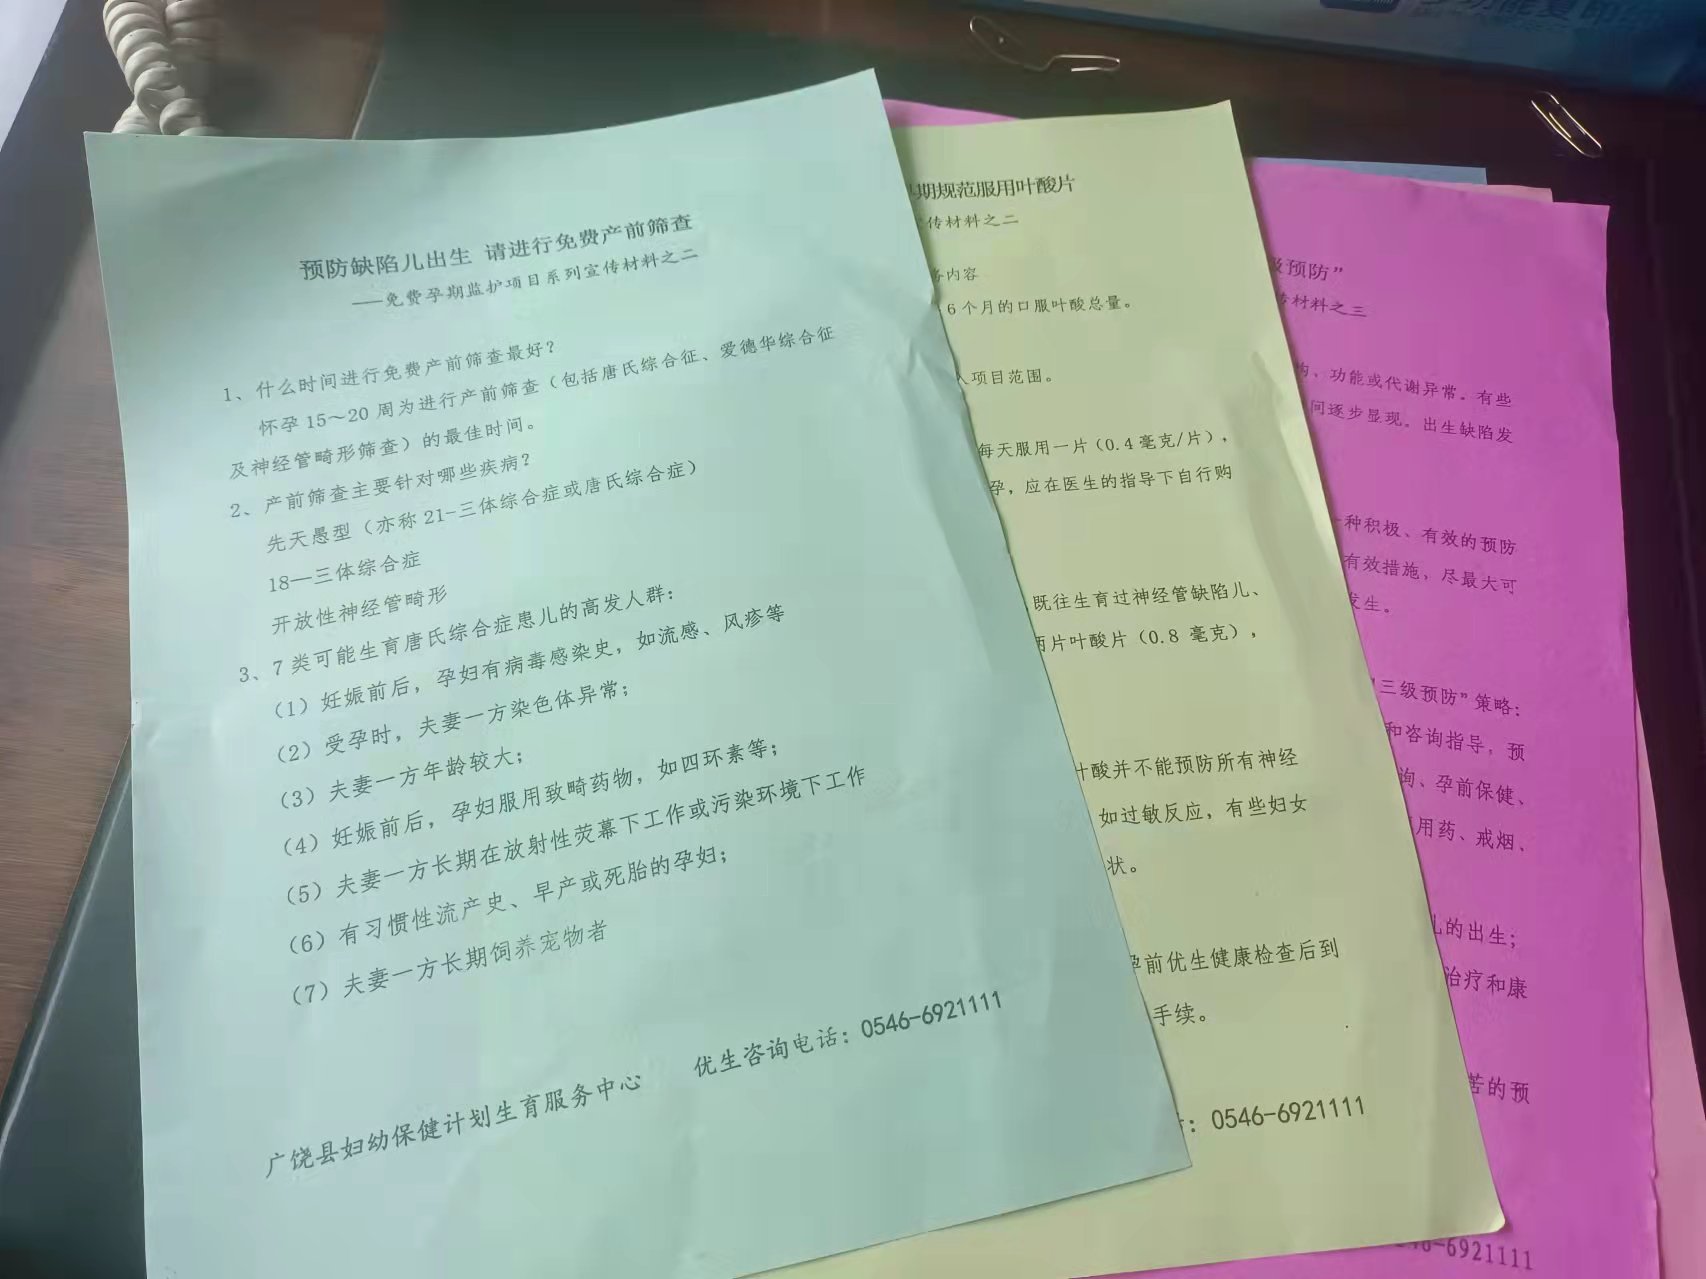 预防缺陷儿出生 请进行免费产前筛查
——免费孕期监护项目系列宣传材料之二
1、什么时间进行免费产前筛查最好？
怀孕15～20周为进行产前筛查（包括唐氏综合征、爱德华综合征
及神经管畸形筛查）的最佳时间。
2、产前筛查主要针对哪些疾病？
先天愚型（亦称21-三体综合症或唐氏综合症）
18—三体综合症
开放性神经管畸形
3、7类可能生育唐氏综合症患儿的高发人群：
（1）妊娠前后，孕妇有病毒感染史，如流感、风疹等
（2）受孕时，夫妻一方染色体异常；
（3）夫妻一方年龄较大；
（4）妊娠前后，孕妇服用致畸药物，如四环素等；
（5）夫妻一方长期在放射性荧幕下工作或污染环境下工作
（6）有习惯性流产史、早产或死胎的孕妇；
（7）夫妻一方长期饲养宠物者
优生咨询电话：0546-6921111
广饶县妇幼保健计划生育服务中心
期规范服用叶酸片
传材料之二
内容
6个月的口服叶酸总量。
项目范围。
每天服用一片（0.4毫克/片），
孕，应在医生的指导下自行购
既往生育过神经管缺陷儿、
两片叶酸片（0.8毫克），
叶酸并不能预防所有神经
如过敏反应，有些妇女
状。
孕前优生健康检查后到
手续。
：0546-6921111
级预防”
材料之三
、功能或代谢异常。有些
间逐步显现。出生缺陷发
种积极、有效的预防
有效措施，尽最大可
发生。
“三级预防”策略：
和咨询指导，预
询、孕前保健、
用药、戒烟、
儿的出生；
治疗和康
苦的预
-6921111